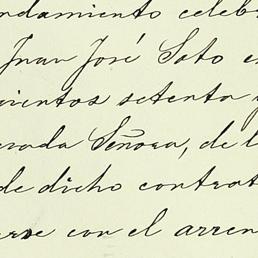 ndamiento celebr
Juan José Soto e
cientos setenta y
rada Señora, de l
de dicho contrat
erse con el arren